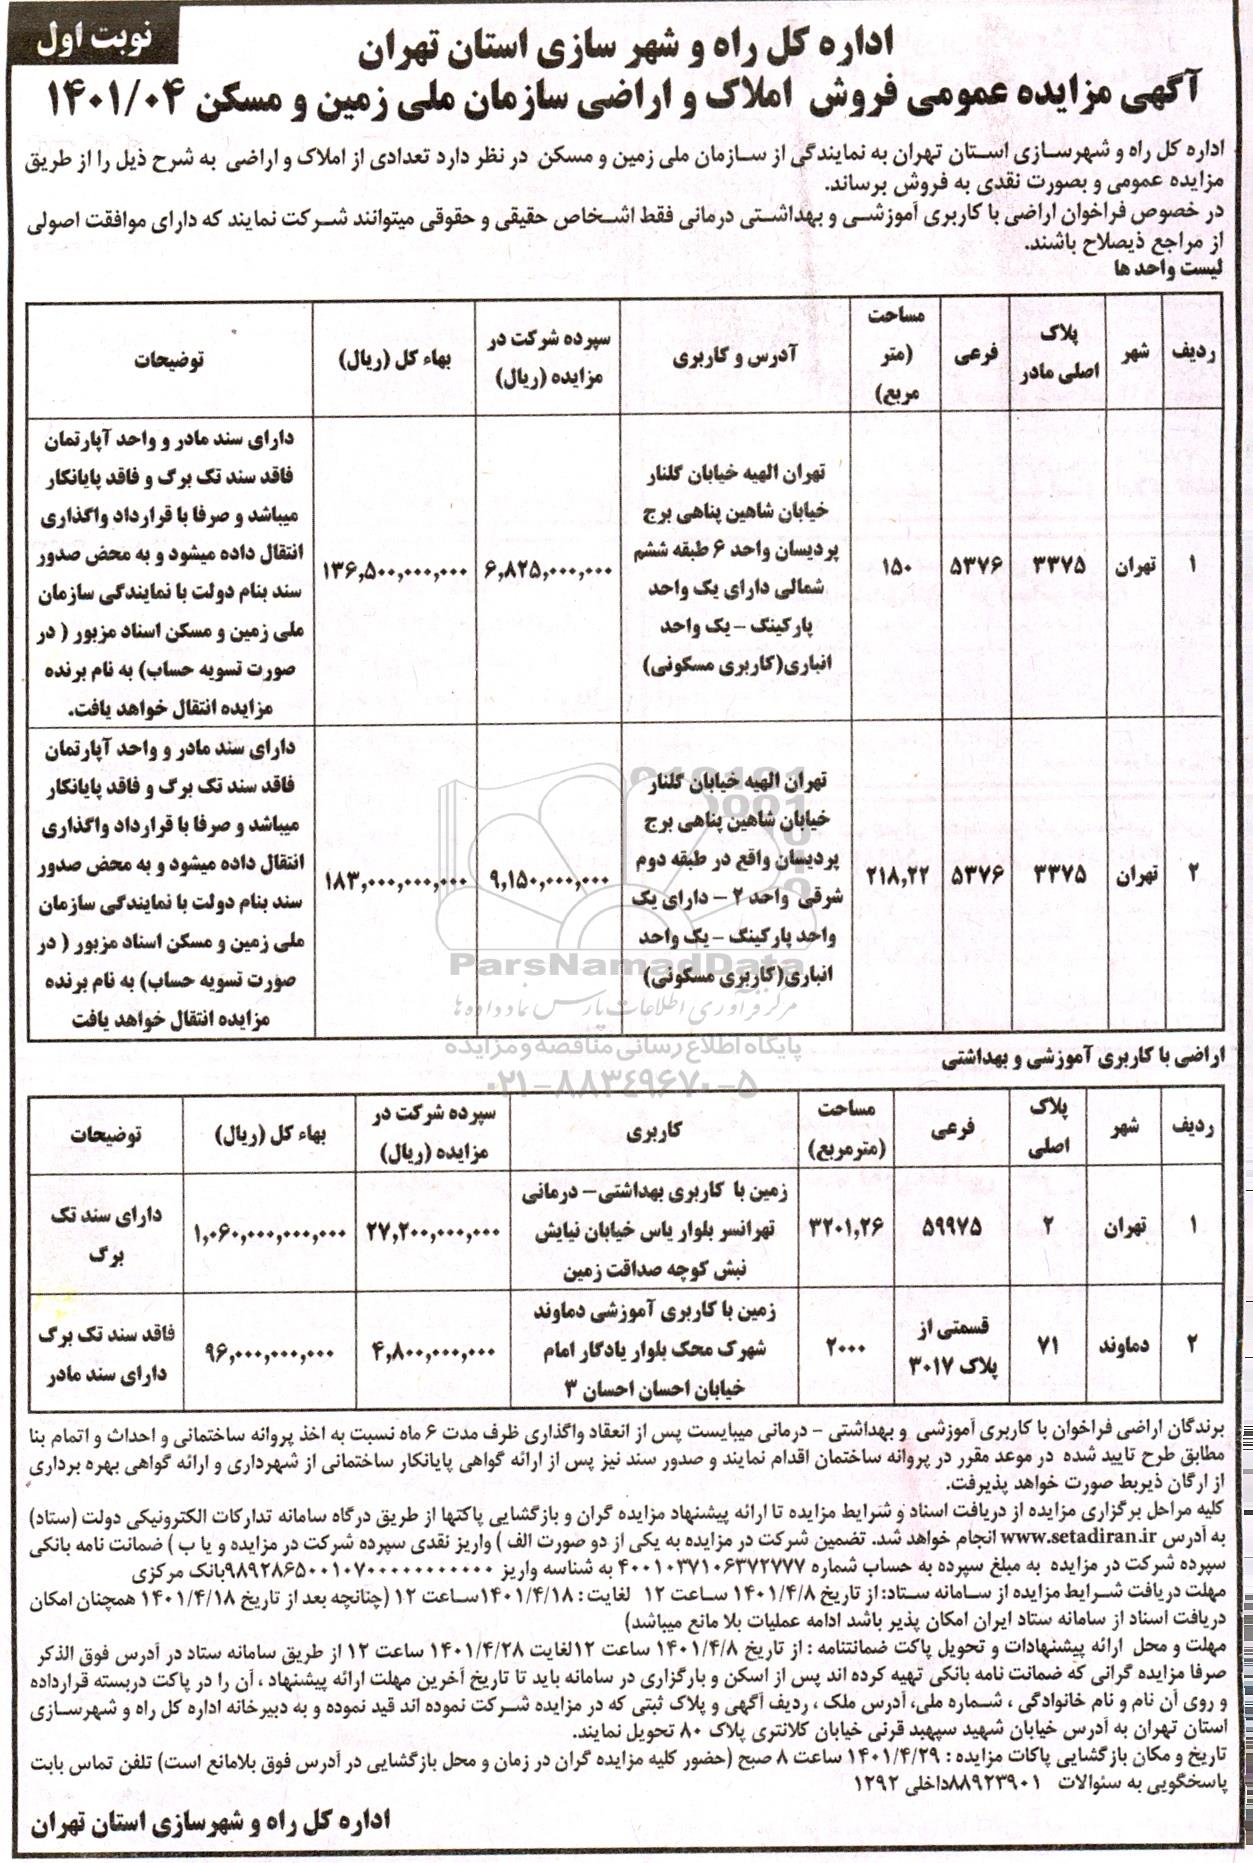 نوبت اول
اداره کل راه و شهر سازی استان تهران
آگهی مزایده عمومی فروش املاک و اراضی سازمان ملی زمین و مسکن ۱۴۰۱/۰۴
اداره کل راه و شهرسازی استان تهران به نمایندگی از سازمان ملی زمین و مسکن در نظر دارد تعدادی از املاک و اراضی به شرح ذیل را از طریق
مزایده عمومی و بصورت نقدی به فروش برساند.
در خصوص فراخوان اراضی با کاربری آموزشی و بهداشتی درمانی فقط اشخاص حقیقی و حقوقی میتوانند شرکت نمایند که دارای موافقت اصولی
از مراجع ذیصلاح باشند.
لیست واحد ها
ردیف
شهر
پلاک
اصلی مادر
فرعی
مساحت
(متر
مربع)
آدرس و کاربری
سپرده شرکت در
مزایده (ریال)
بهاء کل (ریال)
توضیحات
۱
تهران
۳۳۷۵
۵۳۷۶
۱۵۰
تهران الهیه خیابان گلنار
خیابان شاهین پناهی برج
پردیسان واحد ۶ طبقه ششم
شمالی دارای یک واحد
پارکینگ – یک واحد
انباری(کاربری مسکونی)
۶,۸۲۵,۰۰۰,۰۰۰
۱۳۶,۵۰۰,۰۰۰,۰۰۰
دارای سند مادر و واحد آپارتمان
فاقد سند تک برگ و فاقد پایانکار
میباشد و صرفا با قرارداد واگذاری
انتقال داده میشود و به محض صدور
سند بنام دولت با نمایندگی سازمان
ملی زمین و مسکن اسناد مزبور ( در
صورت تسویه حساب) به نام برنده
مزایده انتقال خواهد یافت.
۲
تهران
۳۳۷۵
۵۳۷۶
۲۱۸,۲۲
تهران الهیه خیابان گلنار
خیابان شاهین پناهی برج
پردیسان واقع در طبقه دوم
شرقی واحد ۲ – دارای یک
واحد پارکینگ – یک واحد
انباری(کاربری مسکونی)
۹,۱۵۰,۰۰۰,۰۰۰
۱۸۳,۰۰۰,۰۰۰,۰۰۰
دارای سند مادر و واحد آپارتمان
فاقد سند تک برگ و فاقد پایانکار
میباشد و صرفا با قرارداد واگذاری
انتقال داده میشود و به محض صدور
سند بنام دولت با نمایندگی سازمان
ملی زمین و مسکن اسناد مزبور ( در
صورت تسویه حساب) به نام برنده
مزایده انتقال خواهد یافت
ParsNamadData
مرکز فرآوری اطلاعات پارس نماد داده ها
پایگاه اطلاع رسانی مناقصه و مزایده
۰۲۱-۸۸۳۴۹۶۷۰-۵
اراضی با کاربری آموزشی و بهداشتی
ردیف
شهر
پلاک
اصلی
فرعی
مساحت
(مترمربع)
کاربری
سپرده شرکت در
مزایده (ریال)
بهاء کل (ریال)
توضیحات
۱
تهران
۲
۵۹۹۷۵
۳۲۰۱,۲۶
زمین با کاربری بهداشتی– درمانی
تهرانسر بلوار یاس خیابان نیایش
نبش کوچه صداقت زمین
۲۷,۲۰۰,۰۰۰,۰۰۰
۱,۰۶۰,۰۰۰,۰۰۰,۰۰۰
دارای سند تک
برگ
۲
دماوند
۷۱
قسمتی از
پلاک ۳۰۱۷
۲۰۰۰
زمین با کاربری آموزشی دماوند
شهرک محک بلوار یادگار امام
خیابان احسان احسان ۳
۴,۸۰۰,۰۰۰,۰۰۰
۹۶,۰۰۰,۰۰۰,۰۰۰
فاقد سند تک برگ
دارای سند مادر
برندگان اراضی فراخوان با کاربری آموزشی و بهداشتی – درمانی میبایست پس از انعقاد واگذاری ظرف مدت ۶ ماه نسبت به اخذ پروانه ساختمانی و احداث و اتمام بنا
مطابق طرح تایید شده در موعد مقرر در پروانه ساختمان اقدام نمایند و صدور سند نیز پس از ارائه گواهی پایانکار ساختمانی از شهرداری و ارائه گواهی بهره برداری
از ارگان ذیربط صورت خواهد پذیرفت.
کلیه مراحل برگزاری مزایده از دریافت اسناد و شرایط مزایده تا ارائه پیشنهاد مزایده گران و بازگشایی پاکتها از طریق درگاه سامانه تدارکات الکترونیکی دولت (ستاد)
به آدرس www.setadiran.ir انجام خواهد شد. تضمین شرکت در مزایده به یکی از دو صورت الف ) واریز نقدی سپرده شرکت در مزایده و یا ب ) ضمانت نامه بانکی
سپرده شرکت در مزایده به مبلغ سپرده به حساب شماره ۴۰۰۱۰۳۷۱۰۶۳۷۲۷۷۷ به شناسه واریز بانک مرکزی
مهلت دریافت شرایط مزایده از سامانه ستاد: از تاریخ ۱۴۰۱/۴/۸ ساعت ۱۲ لغایت : ۱۴۰۱/۴/۱۸ساعت ۱۲ (چنانچه بعد از تاریخ ۱۴۰۱/۴/۱۸ همچنان امکان
دریافت اسناد از سامانه ستاد ایران امکان پذیر باشد ادامه عملیات بلا مانع میباشد)
مهلت و محل ارائه پیشنهادات و تحویل پاکت ضمانتنامه : از تاریخ ۱۴۰۱/۴/۸ ساعت ۱۲لغایت ۱۴۰۱/۴/۲۸ ساعت ۱۲ از طریق سامانه ستاد در آدرس فوق الذکر
صرفا مزایده گرانی که ضمانت نامه بانکی تهیه کرده اند پس از اسکن و بارگزاری در سامانه باید تا تاریخ آخرین مهلت ارائه پیشنهاد ، آن را در پاکت دربسته قرارداده
و روی آن نام و نام خانوادگی ، شماره ملی، آدرس ملک ، ردیف آگهی و پلاک ثبتی که در مزایده شرکت نموده اند قید نموده و به دبیرخانه اداره کل راه و شهرسازی
استان تهران به آدرس خیابان شهید سپهبد قرنی خیابان کلانتری پلاک ۸۰ تحویل نمایند.
تاریخ و مکان بازگشایی پاکات مزایده : ۱۴۰۱/۴/۲۹ ساعت ۸ صبح (حضور کلیه مزایده گران در زمان و محل بازگشایی در آدرس فوق بلامانع است) تلفن تماس بابت
پاسخگویی به سئوالات ۸۸۹۲۳۹۰۱داخلی ۱۲۹۲
اداره کل راه و شهرسازی استان تهران